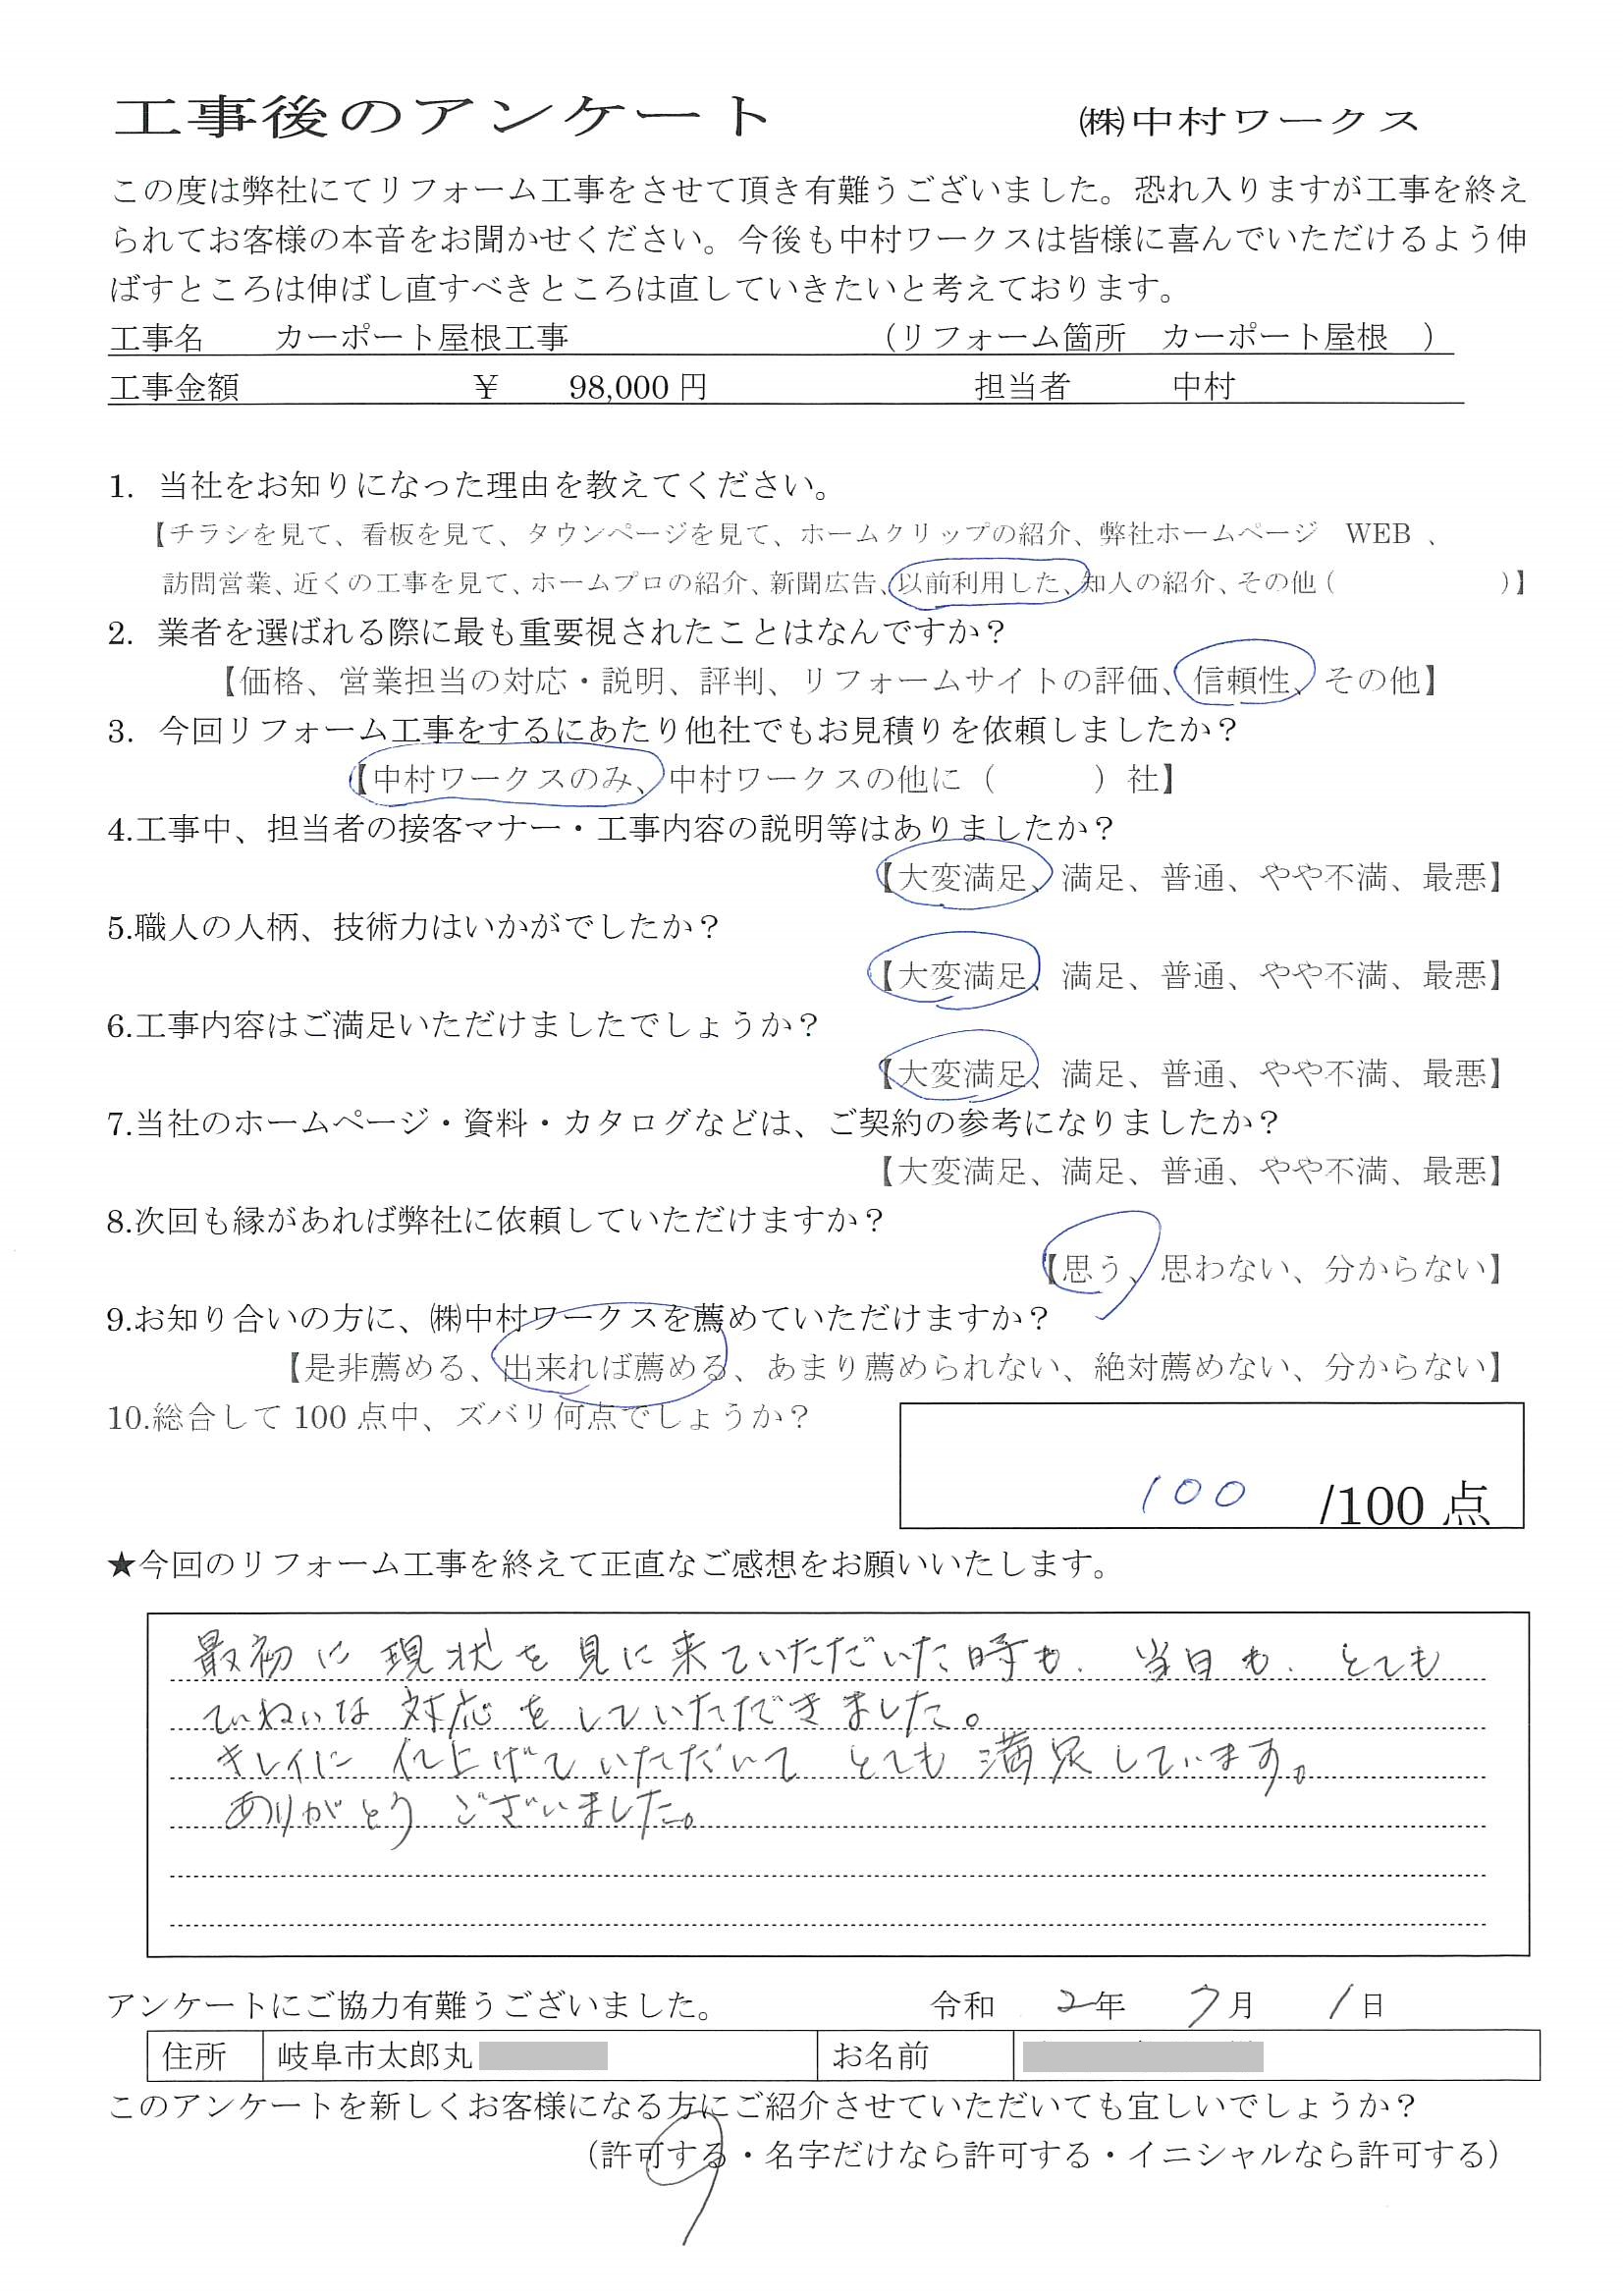 工事後のアンケート ㈱中村ワークス
この度は弊社にてリフォーム工事をさせて頂き有難うございました。恐れ入りますが工事を終え
られてお客様の本音をお聞かせください。今後も中村ワークスは皆様に喜んでいただけるよう伸
ばすところは伸ばし直すべきところは直していきたいと考えております。
工事名 カーポート屋根工事 （リフォーム箇所 カーポート屋根 ）
工事金額 ￥ 98,000 円 担当者 中村
1. 当社をお知りになった理由を教えてください。
【チラシを見て、看板を見て、タウンページを見て、ホームクリップの紹介、弊社ホームページ WEB 、
訪問営業、近くの工事を見て、ホームプロの紹介、新聞広告、以前利用した、知人の紹介、その他（ ）】
2. 業者を選ばれる際に最も重要視されたことはなんですか？
【価格、営業担当の対応・説明、評判、リフォームサイトの評価、信頼性、その他】
3. 今回リフォーム工事をするにあたり他社でもお見積りを依頼しましたか？
【中村ワークスのみ、中村ワークスの他に（ ）社】
4.工事中、担当者の接客マナー・工事内容の説明等はありましたか？
【大変満足、満足、普通、やや不満、最悪】
5.職人の人柄、技術力はいかがでしたか？
【大変満足、満足、普通、やや不満、最悪】
6.工事内容はご満足いただけましたでしょうか？
【大変満足、満足、普通、やや不満、最悪】
7.当社のホームページ・資料・カタログなどは、ご契約の参考になりましたか？
【大変満足、満足、普通、やや不満、最悪】
8.次回も縁があれば弊社に依頼していただけますか？
【思う、思わない、分からない】
9.お知り合いの方に、㈱中村ワークスを薦めていただけますか？
【是非薦める、出来れば薦める、あまり薦められない、絶対薦めない、分からない】
10.総合して 100 点中、ズバリ何点でしょうか？
100 /100 点
★今回のリフォーム工事を終えて正直なご感想をお願いいたします。
最初に 現状を 見に来ていただいた時も、当日も、とても
ていねいな 対応を していただきました。
キレイに 仕上げて いただいて とても 満足しています。
ありがとう ございました。
アンケートにご協力有難うございました。 令和 2年 7月 1日
住所 岐阜市太郎丸 お名前
このアンケートを新しくお客様になる方にご紹介させていただいても宜しいでしょうか？
（許可する・名字だけなら許可する・イニシャルなら許可する）